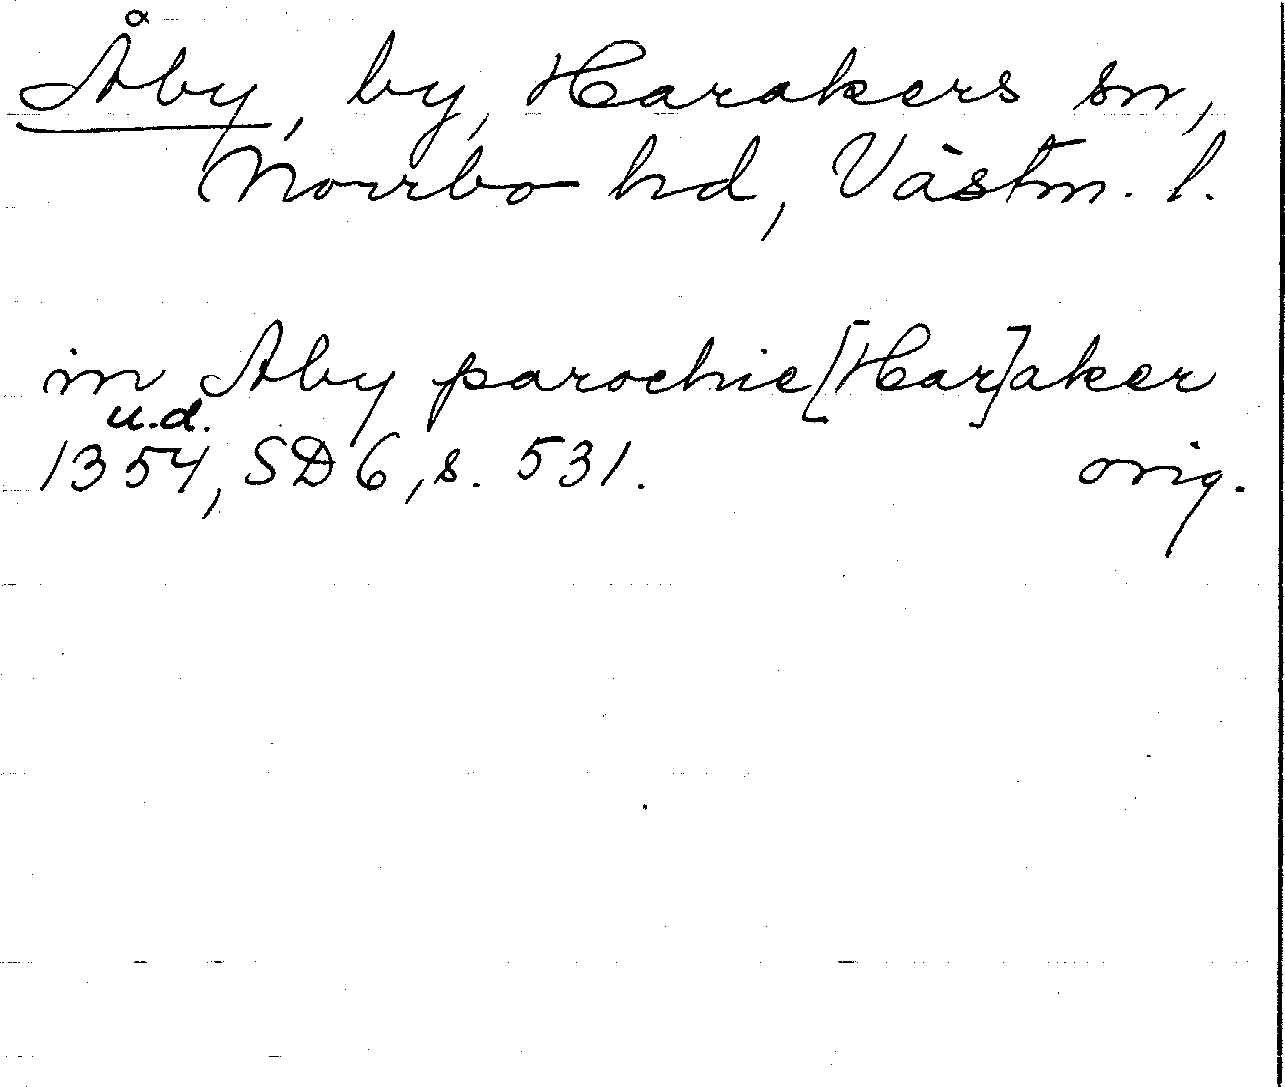 Åby, by, Harakers sn,
Norrbo hd, Västm. l.
in Aby parochie [Har]aker
u.d.
1354, SD 6, s. 531. orig.